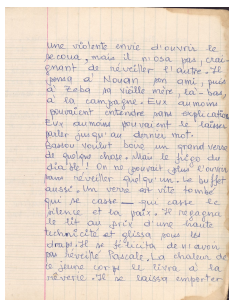 une violente envie d'ouvrir le
secoua, mais il n'osa pas, crai-
gnant de réveiller l'autre. Il
pensa à Nouan son ami, puis
à Zoba sa vieille mère, là-bas,
à la campagne. Eux au moins
pouvaient entendre sans explication
Eux au moins pouvaient le laisser
parler jusqu'au dernier mot.
Bassou voulut boire un grand verre
de quelque chose. Mais le frigo du
diable ! On ne pouvait plus l'ouvrir
sans réveiller quelqu'un. Le buffet
aussi. Un verre est vite tombé
qui se casse — qui casse le
silence et la paix. Il regagna
le lit au prix d'une haute
technicité et glissa sous les
draps. Il se félicita de n'avoir
pas réveillé Pascale. La chaleur de
ce jeune corps le livra à la
rêverie. Il se laissa emporter